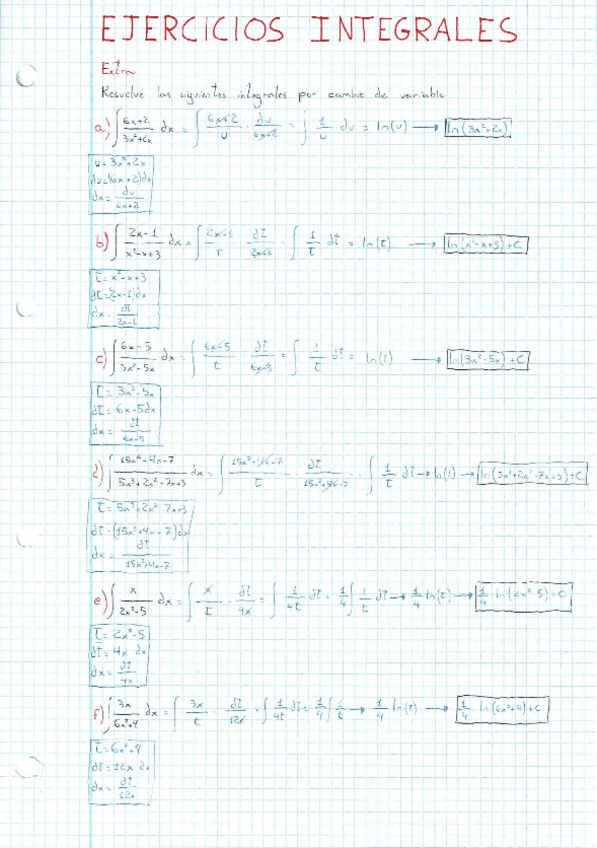 EJERCICIOS INTEGRALES
Extra
Resuelve las siguientes integrales por cambio de variable
a) ∫ (6x+2)/(3x²+2x) dx = ∫ (6x+2)/u · du/(6x+2) = ∫ 1/u du = ln(u) → ln(3x²+2x)
u = 3x²+2x
du = (6x+2)dx
dx = du/(6x+2)
b) ∫ (2x-1)/(x²-x+3) dx = ∫ (2x-1)/t · dt/(2x-1) = ∫ 1/t dt = ln(t) → ln(x²-x+3) + C
t = x²-x+3
dt = (2x-1)dx
dx = dt/(2x-1)
c) ∫ (6x-5)/(3x²-5x) dx = ∫ (6x-5)/t · dt/(6x-5) = ∫ 1/t dt = ln(t) → ln(3x²-5x) + C
t = 3x²-5x
dt = 6x-5dx
dx = dt/(6x-5)
d) ∫ (15x²+4x-7)/(5x³+2x²-7x+3) dx = ∫ (15x²+4x-7)/t · dt/(15x²+4x-7) = ∫ 1/t dt → ln(t) → ln(5x³+2x²-7x+3) + C
t = 5x³+2x²-7x+3
dt = (15x²+4x-7)dx
dx = dt/(15x²+4x-7)
e) ∫ x/(2x²-5) dx = ∫ x/t · dt/4x = ∫ 1/4t dt = 1/4 ∫ 1/t dt → 1/4 ln(t) → 1/4 · ln(2x²-5) + C
t = 2x²-5
dt = 4x dx
dx = dt/4x
f) ∫ 3x/(6x²+4) dx = ∫ 3x/t · dt/12x = ∫ 1/4t dt = 1/4 ∫ 1/t → 1/4 ln(t) → 1/4 · ln(6x²+4) + C
t = 6x²+4
dt = 12x dx
dx = dt/12x